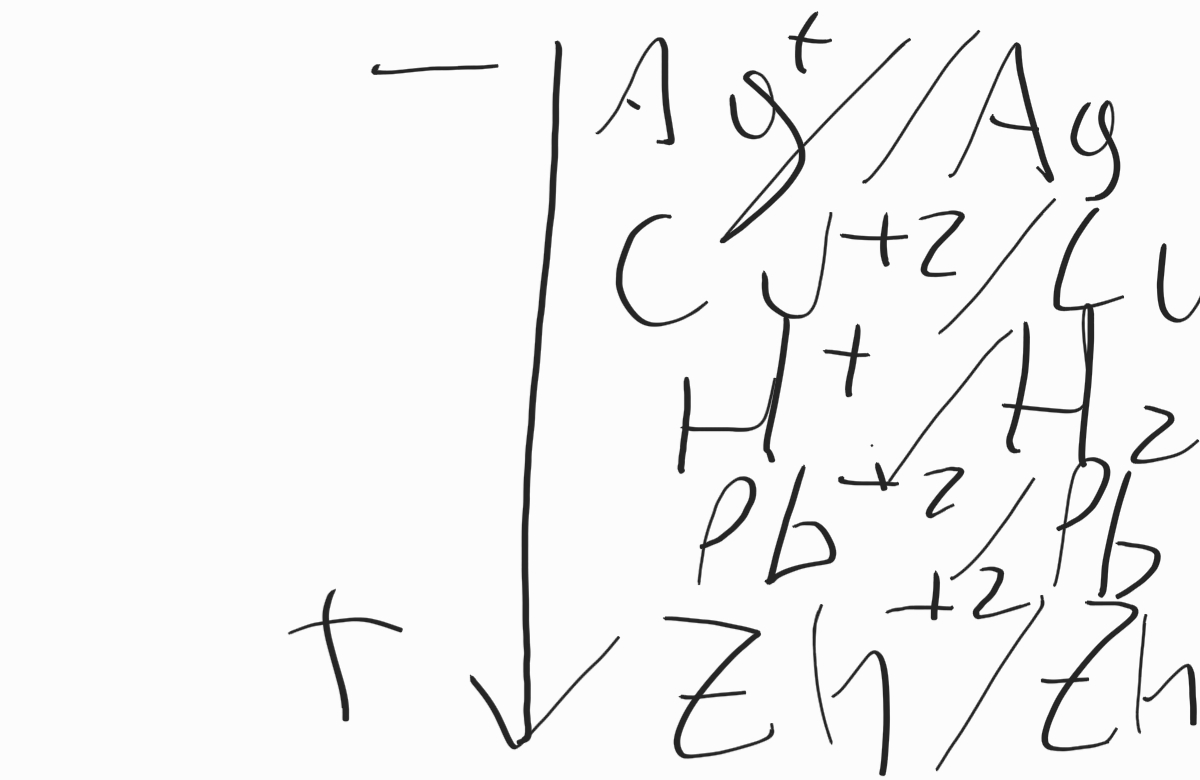 − Ag⁺//Ag
Cu⁺²/Cu
H⁺/H₂
Pb⁺²/Pb
+ Zn⁺²/Zn